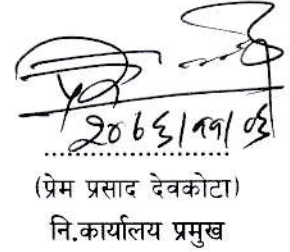 २०७६|११|०६
(प्रेम प्रसाद देवकोटा)
नि.कार्यालय प्रमुख